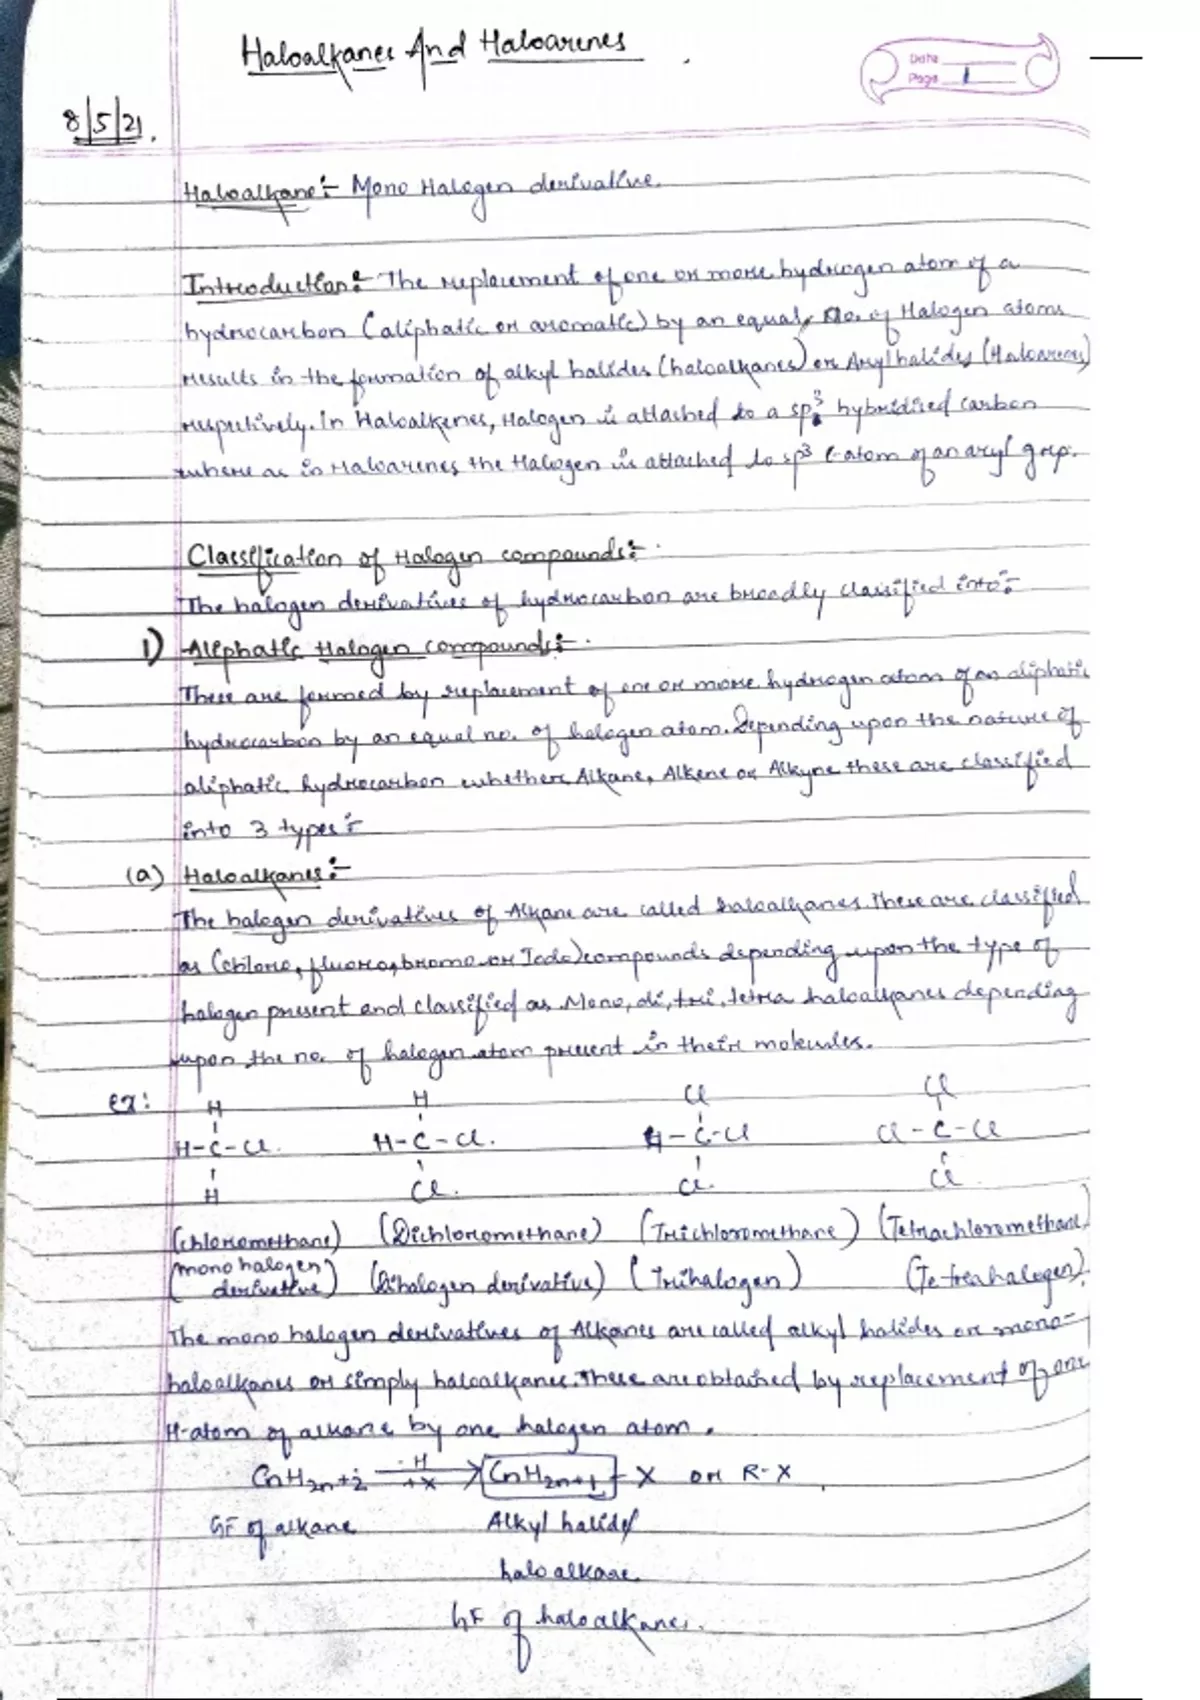 Haloalkanes And Haloarenes
Date
Page 1
8/5/21.
Haloalkane:- Mono Halogen derivative.
Introduction:- The replacement of one or more hydrogen atom of a
hydrocarbon (aliphatic or aromatic) by an equal no. of Halogen atoms
results in the formation of alkyl halides (haloalkanes) or Arylhalides (Haloarenes)
respectively. In Haloalkenes, Halogen is attached to a sp3 hybridised carbon
where as in Haloarenes the Halogen is attached to sp3 C-atom of an aryl grp.
Classification of Halogen compounds:-
The halogen derivatives of hydrocarbon are broadly classified into:-
1) Aliphatic Halogen compounds:-
These are formed by replacement of one or more hydrogen atom of an aliphatic
hydrocarbon by an equal no. of halogen atom. Depending upon the nature of
aliphatic hydrocarbon whether Alkane, Alkene or Alkyne these are classified
into 3 types:-
(a) Haloalkanes:-
The halogen derivatives of Alkane are called haloalkanes. These are classified
as (chloro, fluoro, bromo or Iodo) compounds depending upon the type of
halogen present and classified as Mono, di, tri, tetra haloalkanes depending
upon the no. of halogen atom present in their molecules.
ex: H H Cl Cl
H-C-Cl. H-C-Cl. H-C-Cl Cl-C-Cl
H Cl. Cl. Cl
(Chloromethane) (Dichloromethane) (Trichloromethane) (Tetrachloromethane)
(mono halogen derivative) (Dihalogen derivative) (Trihalogen) (Tetreahalogen).
The mono halogen derivatives of Alkanes are called alkyl halides or mono-
haloalkanes or simply haloalkanes. These are obtained by replacement of one
H-atom of alkane by one halogen atom.
CnH2n+2 -H +X → CnH2n+1 - X or R-X
GF of alkane Alkyl halide/
haloalkane.
GF of haloalkanes.